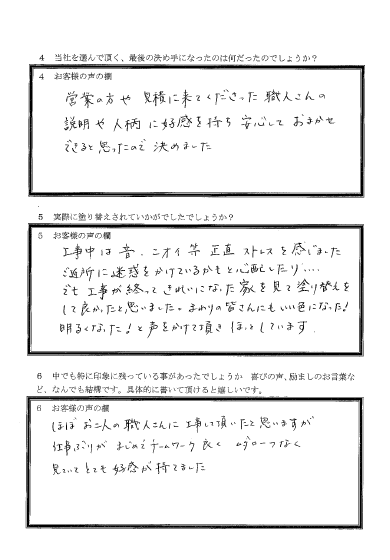 4 当社を選んで頂く、最後の決め手になったのは何だったのでしょうか？
4 お客様の声の欄
営業の方や 見積に来てくださった 職人さんの
説明や 人柄 に好感を持ち 安心して おまかせ
できると思ったので 決めました
5 実際に塗り替えされていかがでしたでしょうか？
5 お客様の声の欄
工事中は 音、ニオイ等 正直 ストレスを感じました
ご近所に迷惑をかけているかもと心配したり....
でも 工事が終って きれいになった 家を見て 塗り替えを
して良かったと思いました。まわりの皆さんにもいい色になった!
明るくなった!と声をかけて頂き ほっとしています.
6 中でも特に印象に残っている事があったでしょうか 喜びの声、励ましのお言葉な
ど、なんでも結構です。具体的に書いて頂けると嬉しいです。
6 お客様の声の欄
ほぼ お二人の 職人さんに 工事して頂いたと思いますが
仕事ぶりが まじめでチームワーク 良く ムダ なく
見ていて とても 好感が 持てました